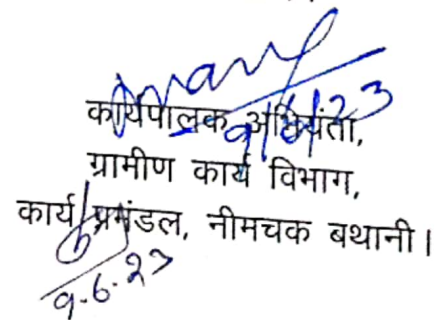 9/6/23
कार्यपालक अभियंता,
ग्रामीण कार्य विभाग,
कार्य प्रमंडल, नीमचक बथानी।
9.6.23